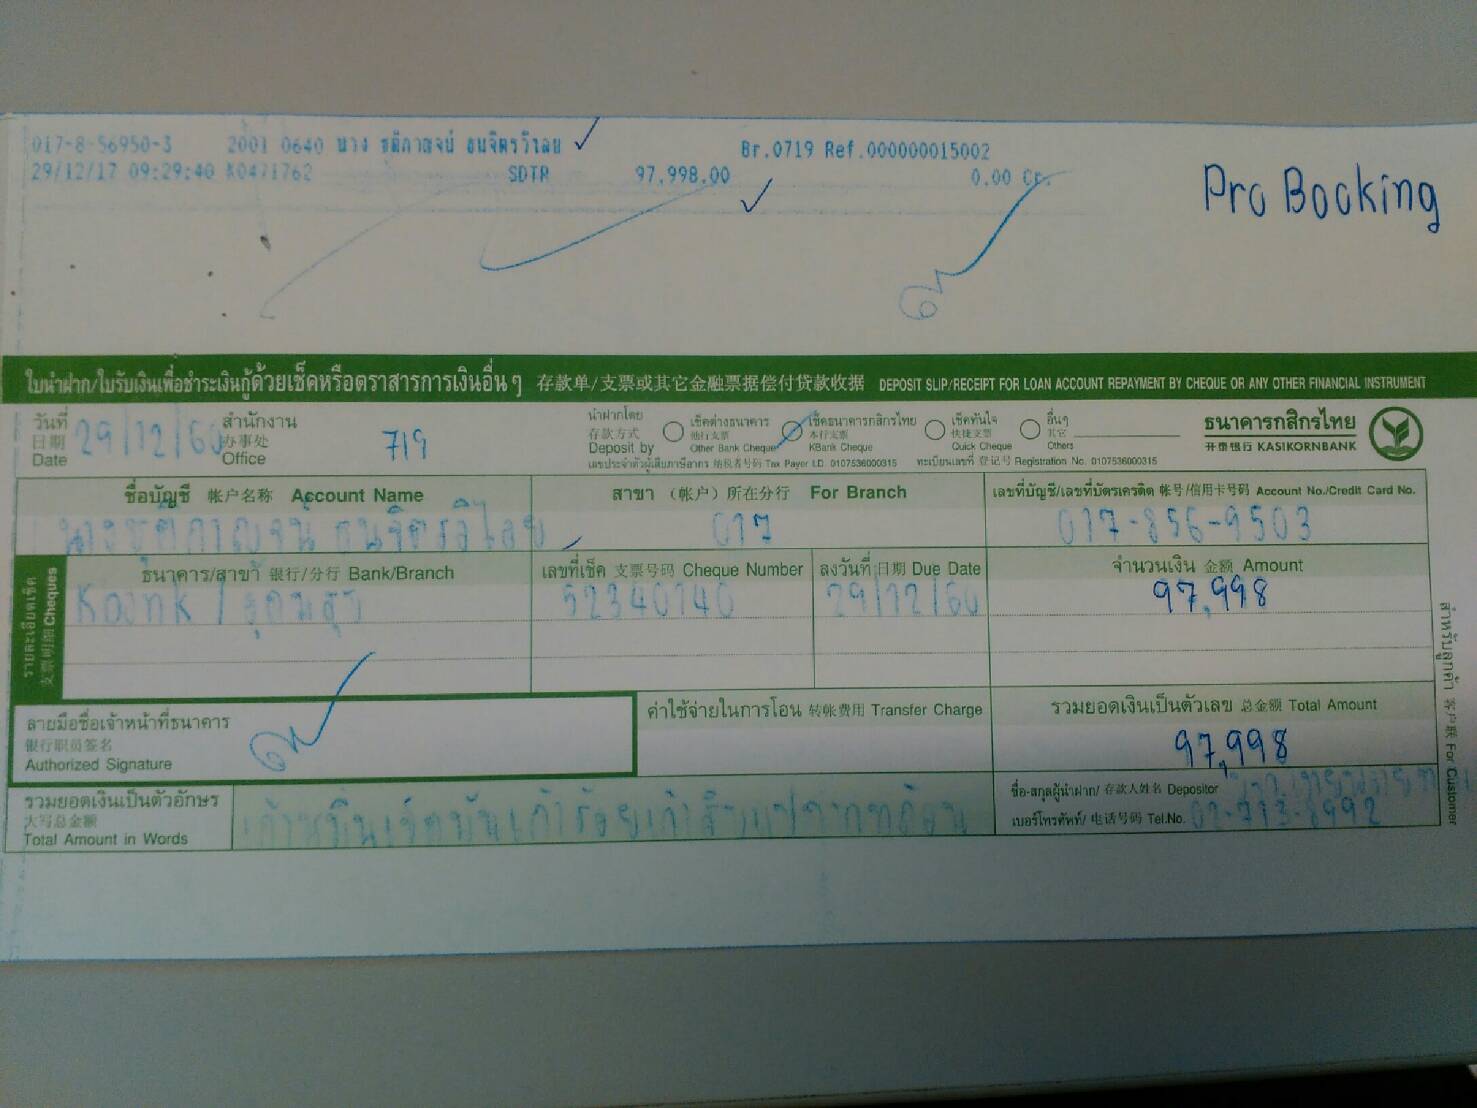 017-8-56950-3 2001 0640 นาง ชุติกาญจน์ ธนจิตรวิไลย Br.0719 Ref.000000015002
29/12/17 09:29:40 K0471762 SDTR 97,998.00 0.00 Cr.
Pro Booking
ใบนำฝาก/ใบรับเงินเพื่อชำระเงินกู้ด้วยเช็คหรือตราสารการเงินอื่นๆ 存款单/支票或其它金融票据偿付贷款收据 DEPOSIT SLIP/RECEIPT FOR LOAN ACCOUNT REPAYMENT BY CHEQUE OR ANY OTHER FINANCIAL INSTRUMENT
วันที่ 日期 Date 29/12/60
สำนักงาน 办事处 Office 719
นำฝากโดย 存款方式 Deposit by
เช็คต่างธนาคาร 他行支票 Other Bank Cheque
เช็คธนาคารกสิกรไทย 本行支票 KBank Cheque
เช็คทันใจ 快捷支票 Quick Cheque
อื่นๆ 其它 Others
ธนาคารกสิกรไทย
开泰银行 KASIKORNBANK
เลขประจำตัวผู้เสียภาษีอากร 纳税者号码 Tax Payer I.D. 0107536000315 ทะเบียนเลขที่ 登记号 Registration No. 0107536000315
ชื่อบัญชี 帐户名称 Account Name สาขา (帐户) 所在分行 For Branch เลขที่บัญชี/เลขที่บัตรเครดิต 帐号/信用卡号码 Account No./Credit Card No.
นางชุติกาญจน์ ธนจิตรวิไลย 017 017-856-9503
รายละเอียดเช็ค 支票明细 Cheques
ธนาคาร/สาขา 银行/分行 Bank/Branch เลขที่เช็ค 支票号码 Cheque Number ลงวันที่ 日期 Due Date จำนวนเงิน 金额 Amount
52340740 29/12/60 97,998
ลายมือชื่อเจ้าหน้าที่ธนาคาร
银行职员签名
Authorized Signature
ค่าใช้จ่ายในการโอน 转帐费用 Transfer Charge
รวมยอดเงินเป็นตัวเลข 总金额 Total Amount
97,998
รวมยอดเงินเป็นตัวอักษร
大写总金额
Total Amount in Words
เก้าหมื่นเจ็ดพันเก้าร้อยเก้าสิบแปดบาทถ้วน
ชื่อ-สกุลผู้นำฝาก/ 存款人姓名 Depositor
เบอร์โทรศัพท์/ 电话号码 Tel.No. 02-713-8992
สำหรับลูกค้า 客户联 For Customer